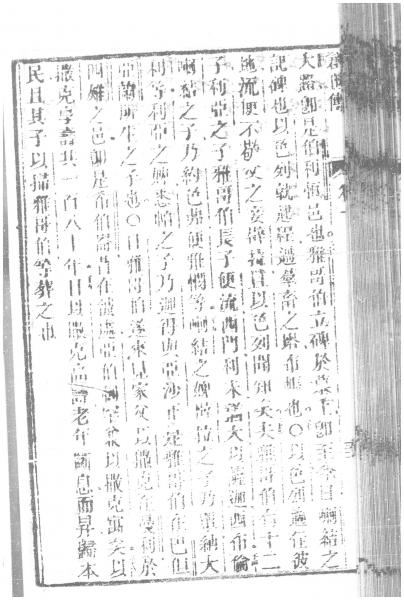 創世傳
大路即是伯利恆邑也雅哥伯立碑於墓上即至今日喇結之
記碑也以色列就起程過羣畜之塔布帳也〇以色列適住彼
地流便不敬父之妾辟拉且以色列聞知夫雅哥伯有十二
子利亞之子雅哥伯長子便流西門利未猶大以薩迦西布倫
喇結之子乃約色弗便雅憫等喇結之婢辟拉之子乃單納大
利等利亞之婢悉帕之子乃迦得與亞沙此是雅哥伯在巴但
亞蘭所生之子也〇且雅哥伯遂來見家父以撒克在曼利於
四雉之邑即是希伯崙昔在彼處亞伯拉罕並以撒克寓矣以
撒克享壽共一百八十年且以撒克高壽老年斷息而昇歸本
民且其子以掃雅哥伯等葬之也